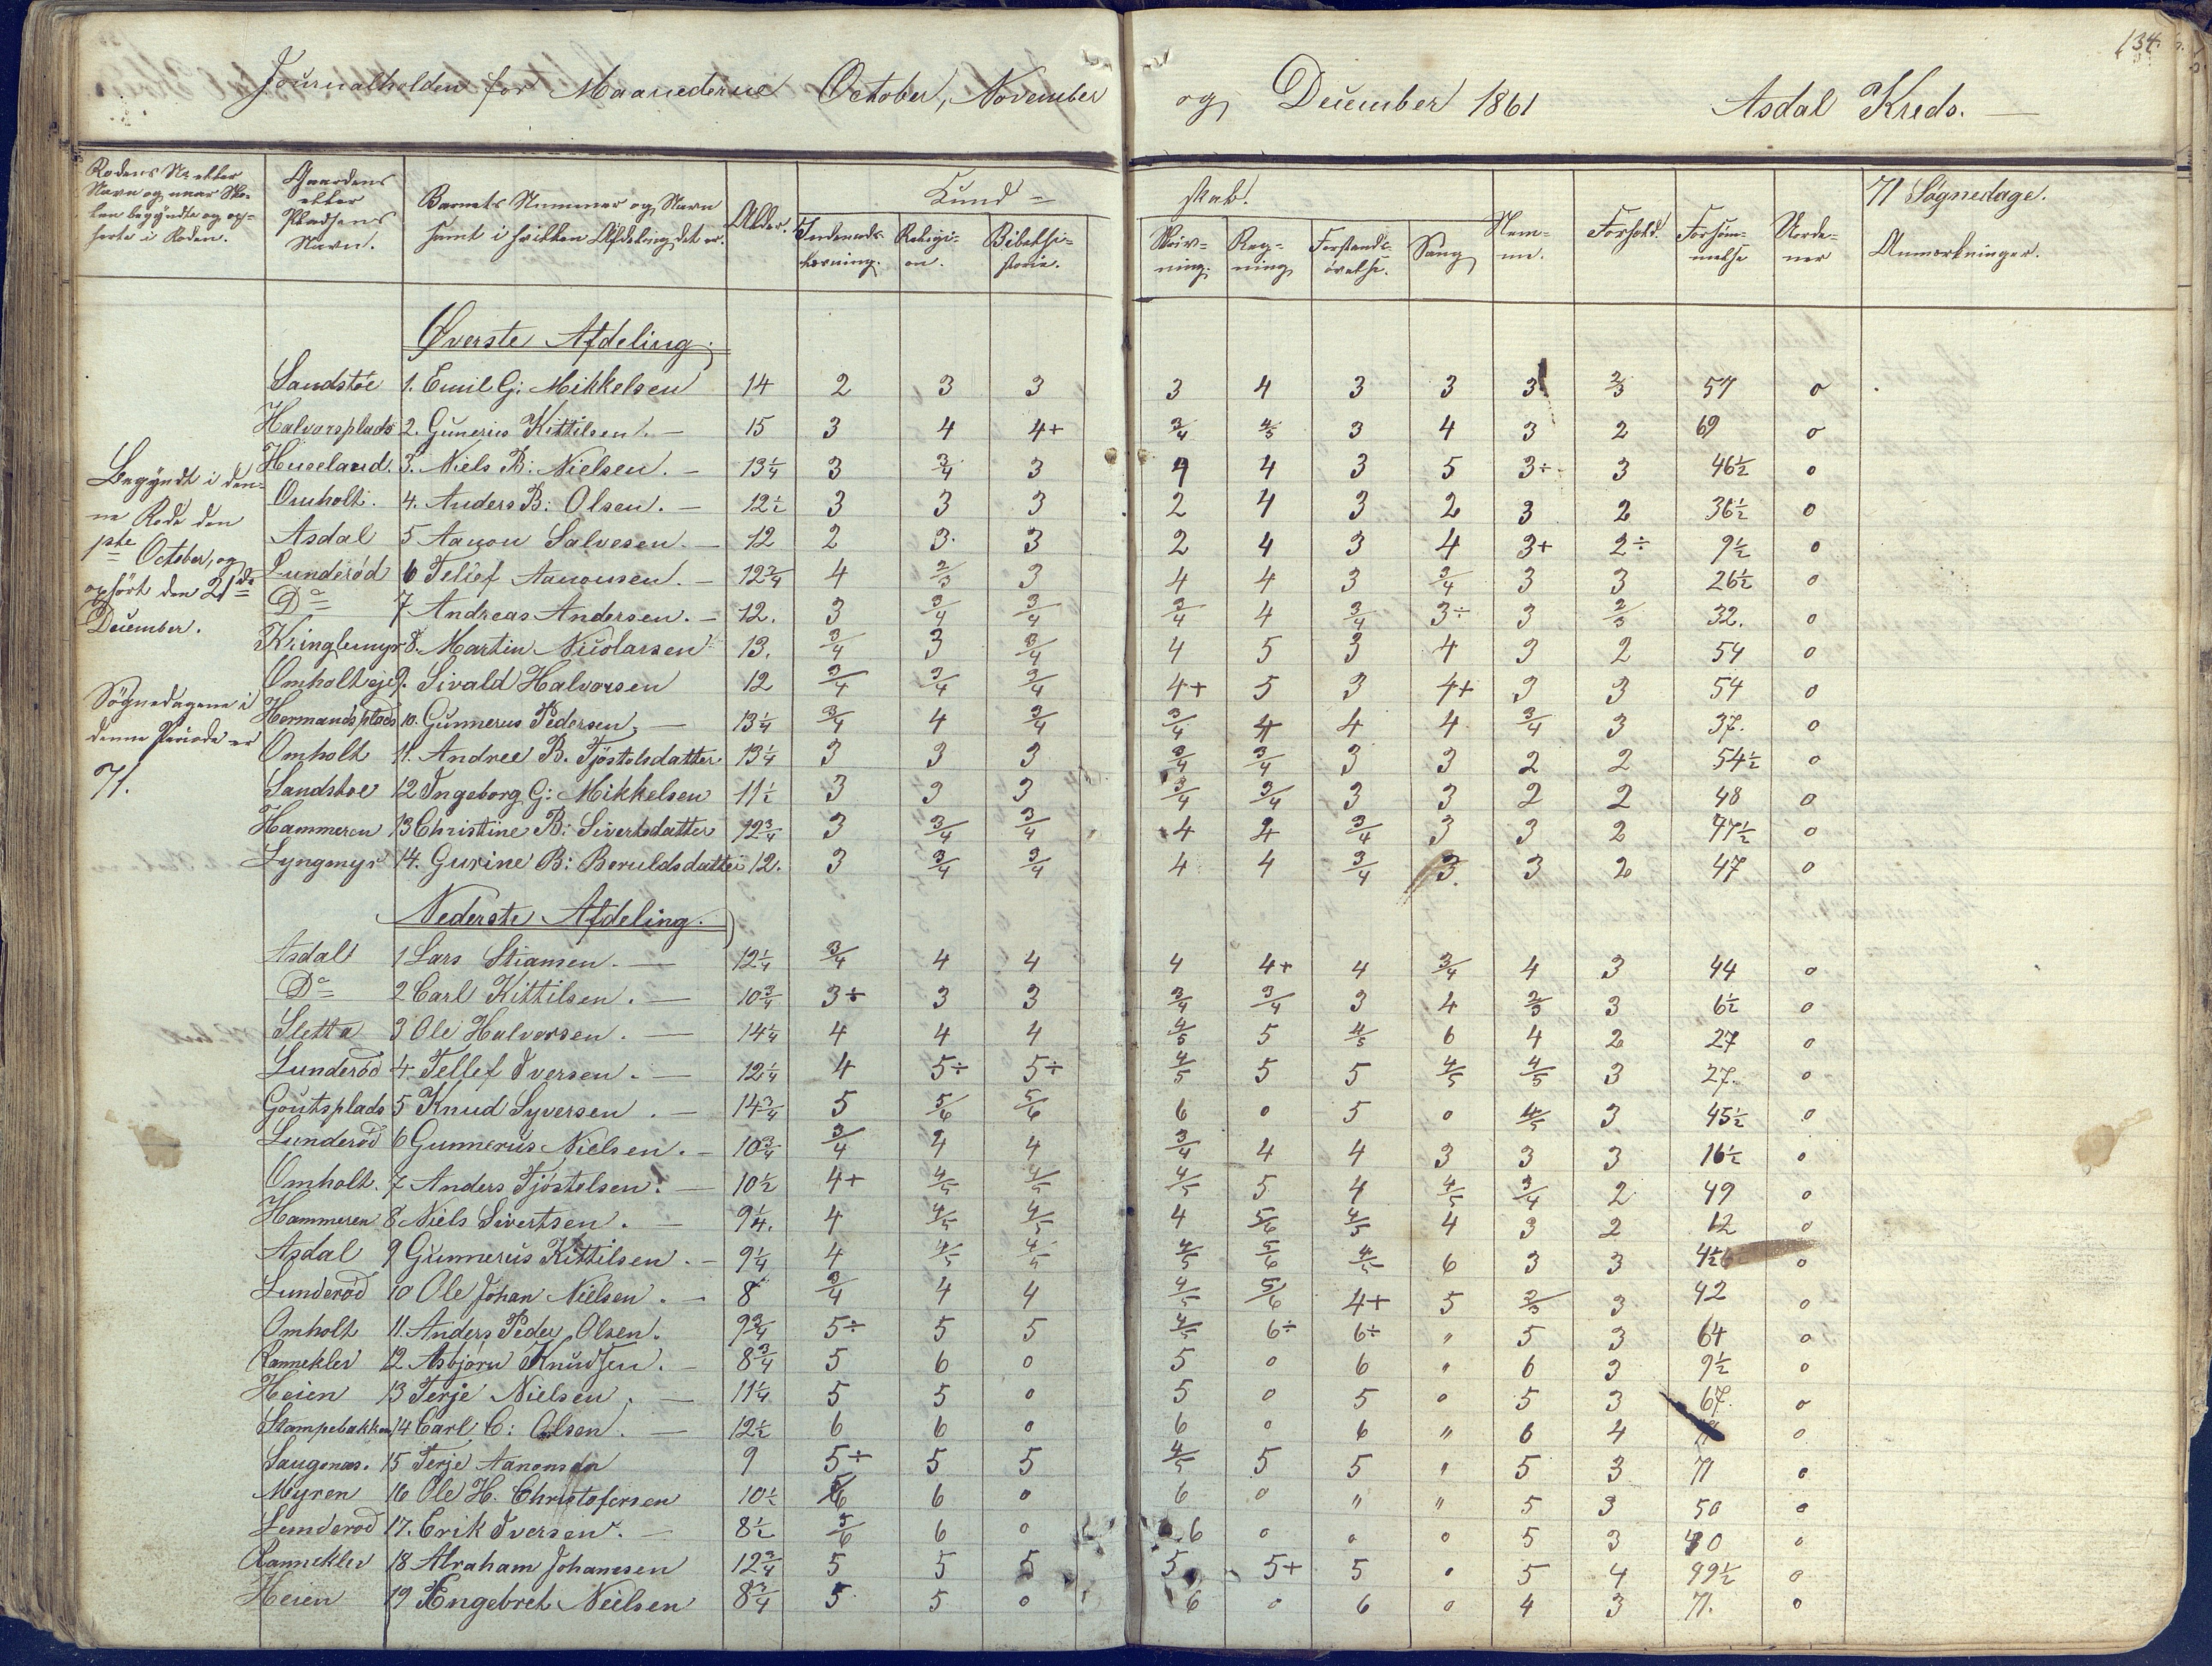 134.
Journalholden for Maanederne October, November og December 1861 Asdal Kreds.
Rodens Nr eller Navn og naar Skolen begyndte og ophørte i Roden.
Gaardens eller Pladsens Navn.
Barnets Nummer og Navn samt i hvilken Afdeling det er.
Alder.
Kund= skab.
Religion.
Bibelhistorie.
Skrivning.
Regning
Forstandsøvelse.
Sang
Nemme.
Forhold.
Forsømmelse
71 Søgnedage.
Anmærkninger.
Begyndt i denne Rode den 1ste October, og ophørt den 21de December.
Søgnedagene i denne Periode er 71.
Øverste Afdeling.
Sandstöe 1. Emil G: Mikkelsen 14 2 3 3 3 4 3 3 3 2/3 57 0
Halvorsplads 2. Gunerius Kittilsen. 15 3 4 4+ 3/4 4/5 3 4 3 2 69 0
Huseland. 3. Niels B: Nielsen. 13 1/4 3 3/4 3 4 4 3 5 3÷ 3 46 1/2 0
Omholt. 4. Anders B: Olsen. 12 1/2 3 3 3 2 4 3 2 3 2 36 1/2 0
Asdal 5 Aanon Salvesen. 12 2 3 3 2 4 3 4 3+ 2÷ 9 1/2 0
Lunderöd 6 Telief Aanonsen. 12 3/4 4 2/3 3 4 4 3 3/4 3 3 26 1/2 0
Do 7 Andreas Andersen. 12. 3 3/4 3/4 3/4 4 3/4 3÷ 3 2/3 32. 0
Kringlemyr 8. Martin Nicolaisen 13. 3/4 3 3/4 4 5 3 4 3 2 54 0
Omholteje 9. Sivald Halvorsen 12 3/4 3/4 3/4 4+ 5 3 4+ 3 3 54 0
Hermandsplads 10. Gunnerus Pedersen, 13 1/4 3/4 4 3/4 3/4 4 4 4 3/4 3 37. 0
Omholt 11. Andree B. Tjöstelsdatter 13 1/4 3 3 3 3/4 3/4 3 3 2 2 54 1/2 0
Sandstoe 12 Ingeborg G: Mikkelsen 11 1/2 3 3 3 3/4 3/4 3 3 2 2 48 0
Hammeren 13 Christine B: Sivertsdatter 12 3/4 3 3/4 3/4 4 4 3/4 3 3 2 47 1/2 0
Lyngmyr 14. Gurine B: Beruldsdatter 12. 3 3/4 3/4 4 4 3/4 3. 3 2 47 0
Nederste Afdeling.
Asdal 1 Lars Stiansen. 12 1/4 3/4 4 4 4 4+ 4 3/4 4 3 44 0
Do 2 Carl Kittilsen. 10 3/4 3÷ 3 3 3/4 3/4 3 4 2/3 3 6 1/2 0
Sletta 3 Ole Halvorsen. 14 1/4 4 4 4 4/5 5 4/5 6 4 2 27 0
Lunderöd 4. Tellef Iversen. 12 1/4 4 5÷ 5÷ 4/5 5 5 4/5 4/5 3 27. 0
Goutsplads 5 Knud Syversen. 14 3/4 5 5/6 5/6 6 0 5 0 4/5 3 45 1/2 0
Lunderöd 6 Gunnerus Nielsen. 10 3/4 3/4 4 4 3/4 4 4 3 3 3 16 1/2 0
Omholt. 7 Anders Tjöstelsen. 10 1/2 4+ 4/5 4/5 4/5 5 4 4/5 3/4 2 49 0
Hammeren 8 Niels Sivertsen. 9 1/4. 4 4/5 4/5 4 5/6 4/5 4 3 2 12 0
Asdal 9 Gunnerus Kittilsen. 9 1/4 4 4/5 4/5 4/5 5/6 4/5 6 3 3 0
Lunderöd 10 Ole Johan Nielsen. 8 3/4 4 4 4/5 5/6 4+ 5 2/3 3 42 0
Omholt 11. Anders Peder Olsen. 9 3/4 5÷ 5 5 4/5 6÷ 6÷ " 5 3 64 0
Rannekler 12 Asbjørn Knudsen. 8 3/4 5 6 0 5 0 6 " 6 3 9 1/2 0
Heien 13 Terje Nielsen. 11 1/4 5 5 0 5 0 5 0 5 3 67. 0
Stampebakken 14 Carl C: Olsen. 12 1/2 6 6 0 6 0 6 " 6 4 0
Saugenæs. 15 Terje Aanonsen 9 5÷ 5 5 4/5 5 5 " 5 3 71 0
Myren 16 Ole H. Christofersen 10 1/2 5/6 6 0 6 0 " " 5 3 50 0
Lunderod 17. Erik Iversen. 8 1/2 5/6 6 0 6 0 0 0 5 3 0
Rannekler 18 Abraham Johanesen 12 3/4 5 5 5 5 5+ 5 0 5 4 0
Heien 19 Engebret Nielsen 8 3/4 5 5 0 6 0 6 0 4 3 71. 0